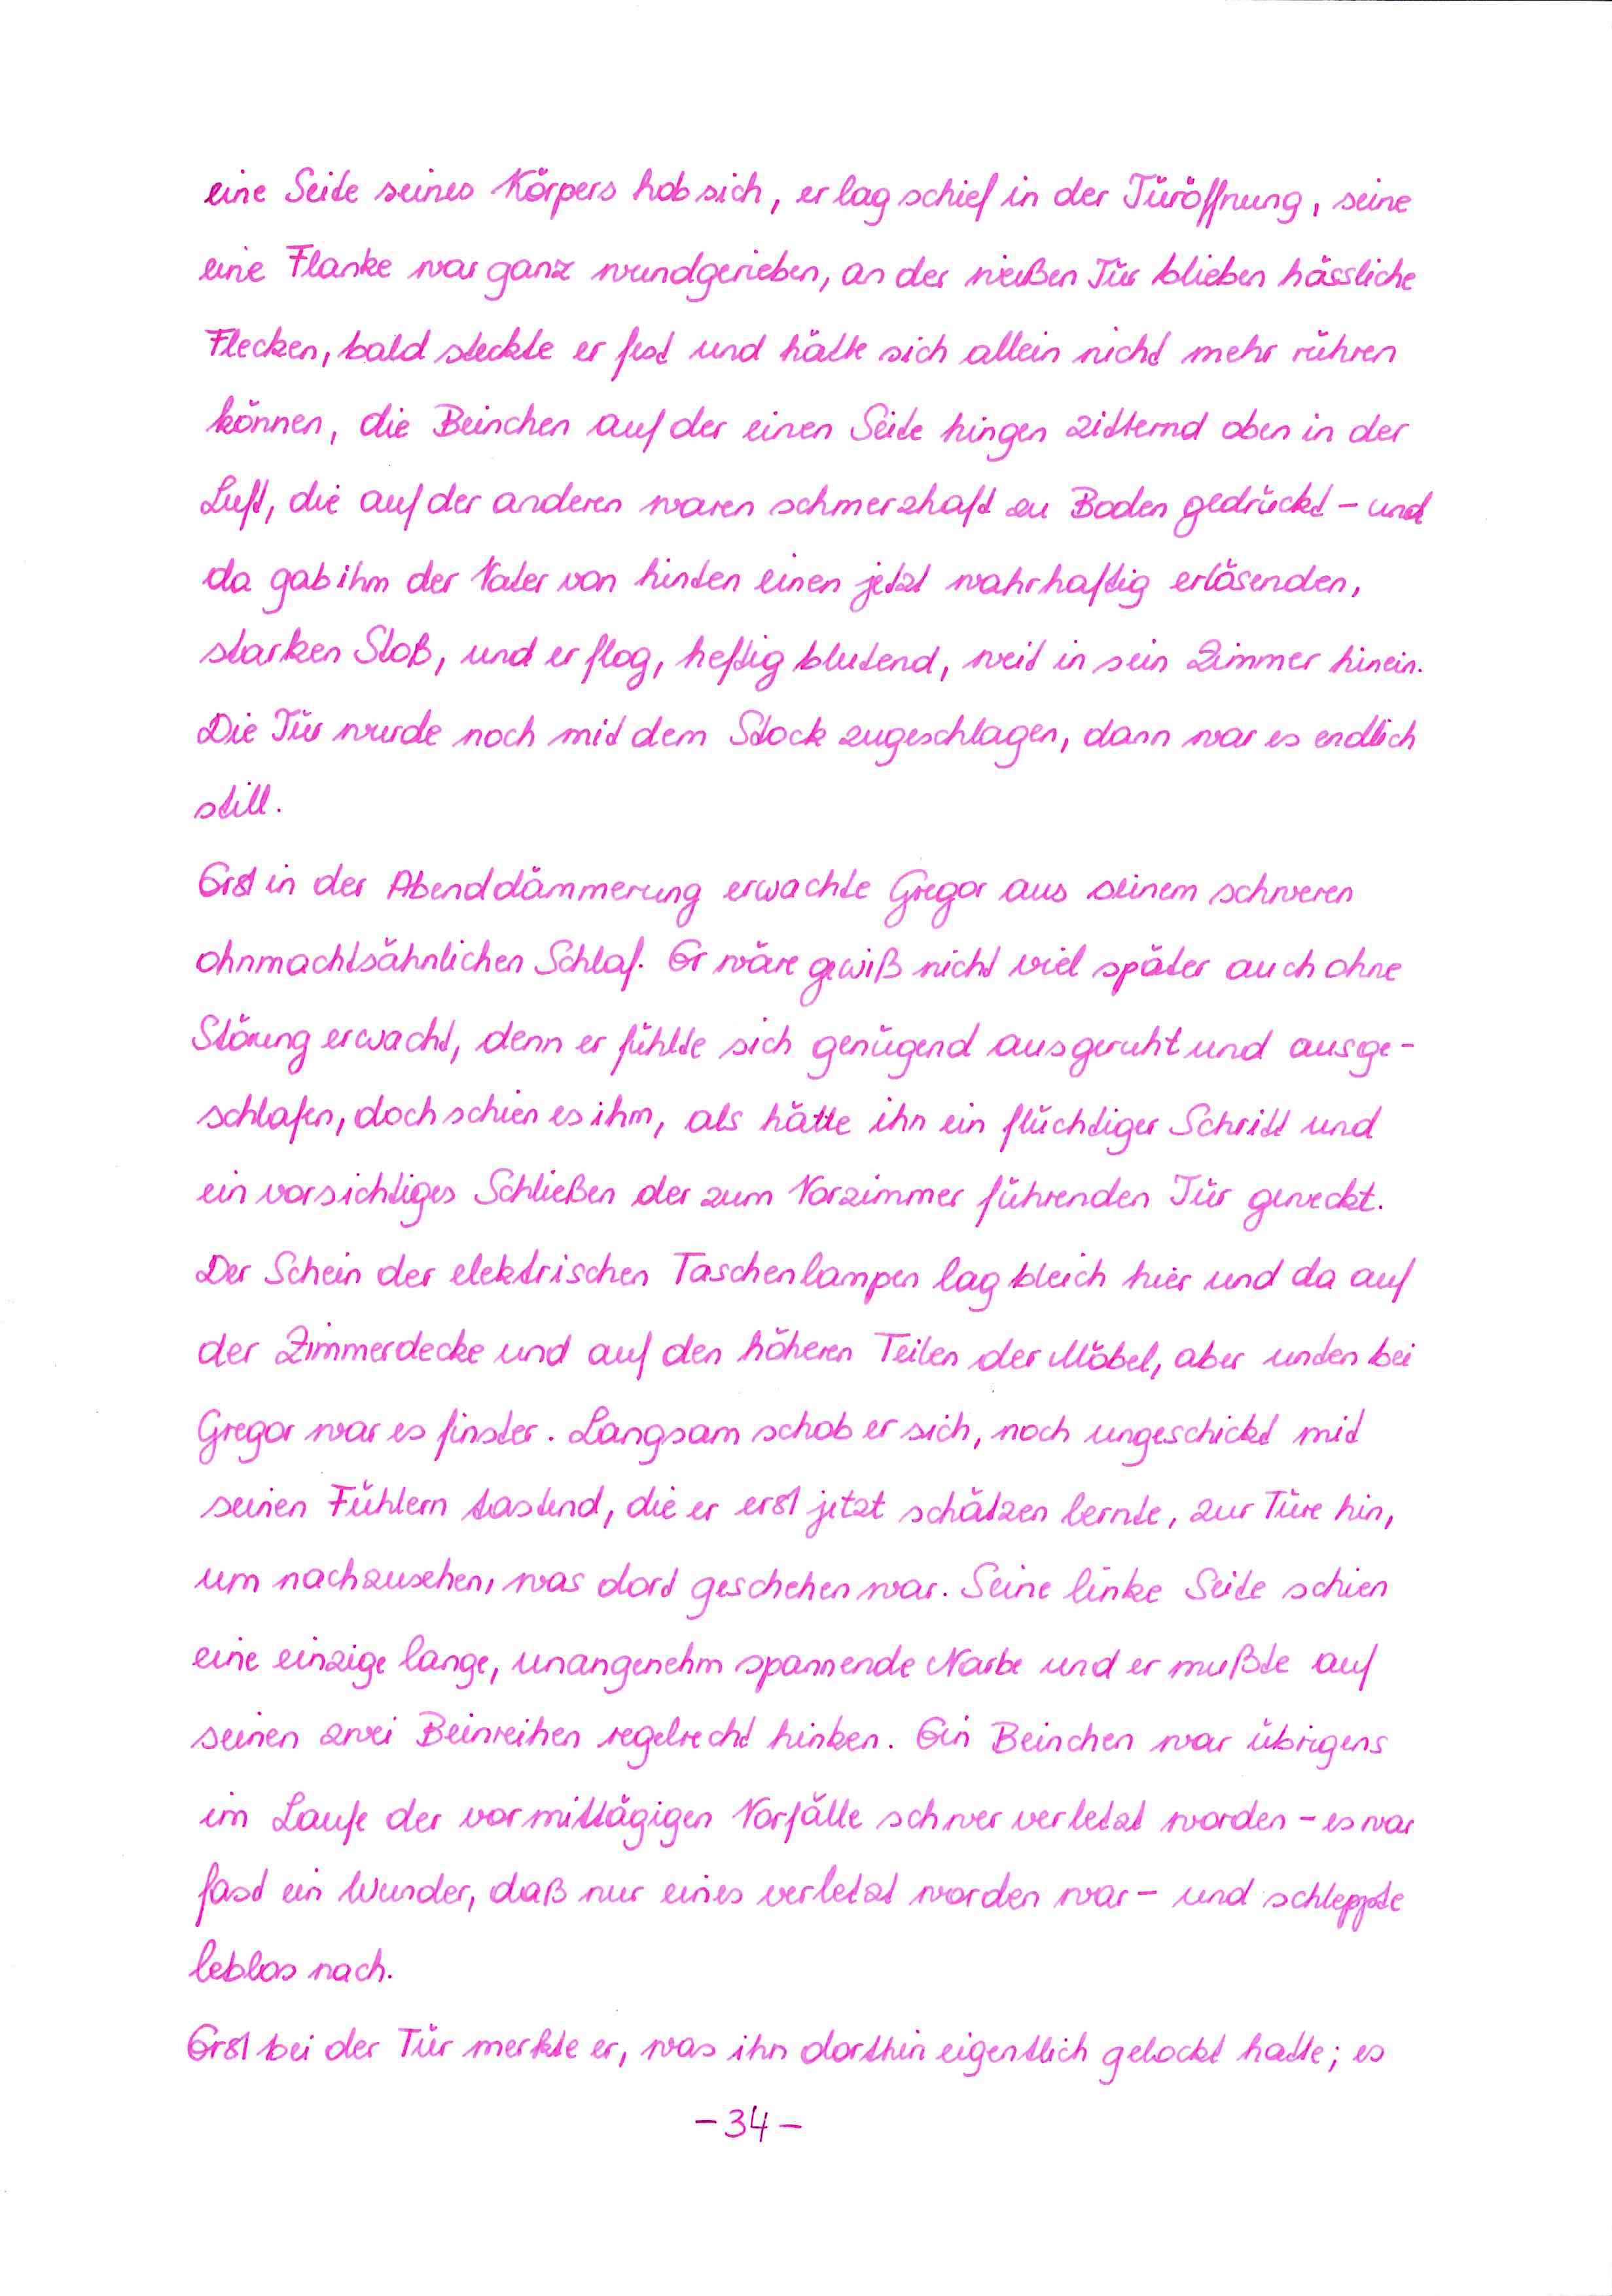 eine Seite seines Körpers hob sich, er lag schief in der Türöffnung, seine
eine Flanke war ganz wundgerieben, an der weißen Tür blieben hässliche
Flecken, bald steckte er fest und hätte sich allein nicht mehr rühren
können, die Beinchen auf der einen Seite hingen zitternd oben in der
Luft, die auf der anderen waren schmerzhaft zu Boden gedrückt – und
da gab ihm der Vater von hinten einen jetzt wahrhaftig erlösenden,
starken Stoß, und er flog, heftig blutend, weit in sein Zimmer hinein.
Die Tür wurde noch mit dem Stock zugeschlagen, dann war es endlich
still.
Erst in der Abenddämmerung erwachte Gregor aus seinem schweren
ohnmachtsähnlichen Schlaf. Er wäre gewiß nicht viel später auch ohne
Störung erwacht, denn er fühlte sich genügend ausgeruht und ausge-
schlafen, doch schien es ihm, als hätte ihn ein flüchtiger Schritt und
ein vorsichtiges Schließen der zum Vorzimmer führenden Tür geweckt.
Der Schein der elektrischen Taschenlampen lag bleich hier und da auf
der Zimmerdecke und auf den höheren Teilen der Möbel, aber unten bei
Gregor war es finster. Langsam schob er sich, noch ungeschickt mit
seinen Fühlern tastend, die er erst jetzt schätzen lernte, zur Türe hin,
um nachzusehen, was dort geschehen war. Seine linke Seite schien
eine einzige lange, unangenehm spannende Narbe und er mußte auf
seinen zwei Beinreihen regelrecht hinken. Ein Beinchen war übrigens
im Laufe der vormittägigen Vorfälle schwer verletzt worden – es war
fast ein Wunder, daß nur eines verletzt worden war – und schleppte
leblos nach.
Erst bei der Tür merkte er, was ihn dorthin eigentlich gelockt hatte; es
– 34 –